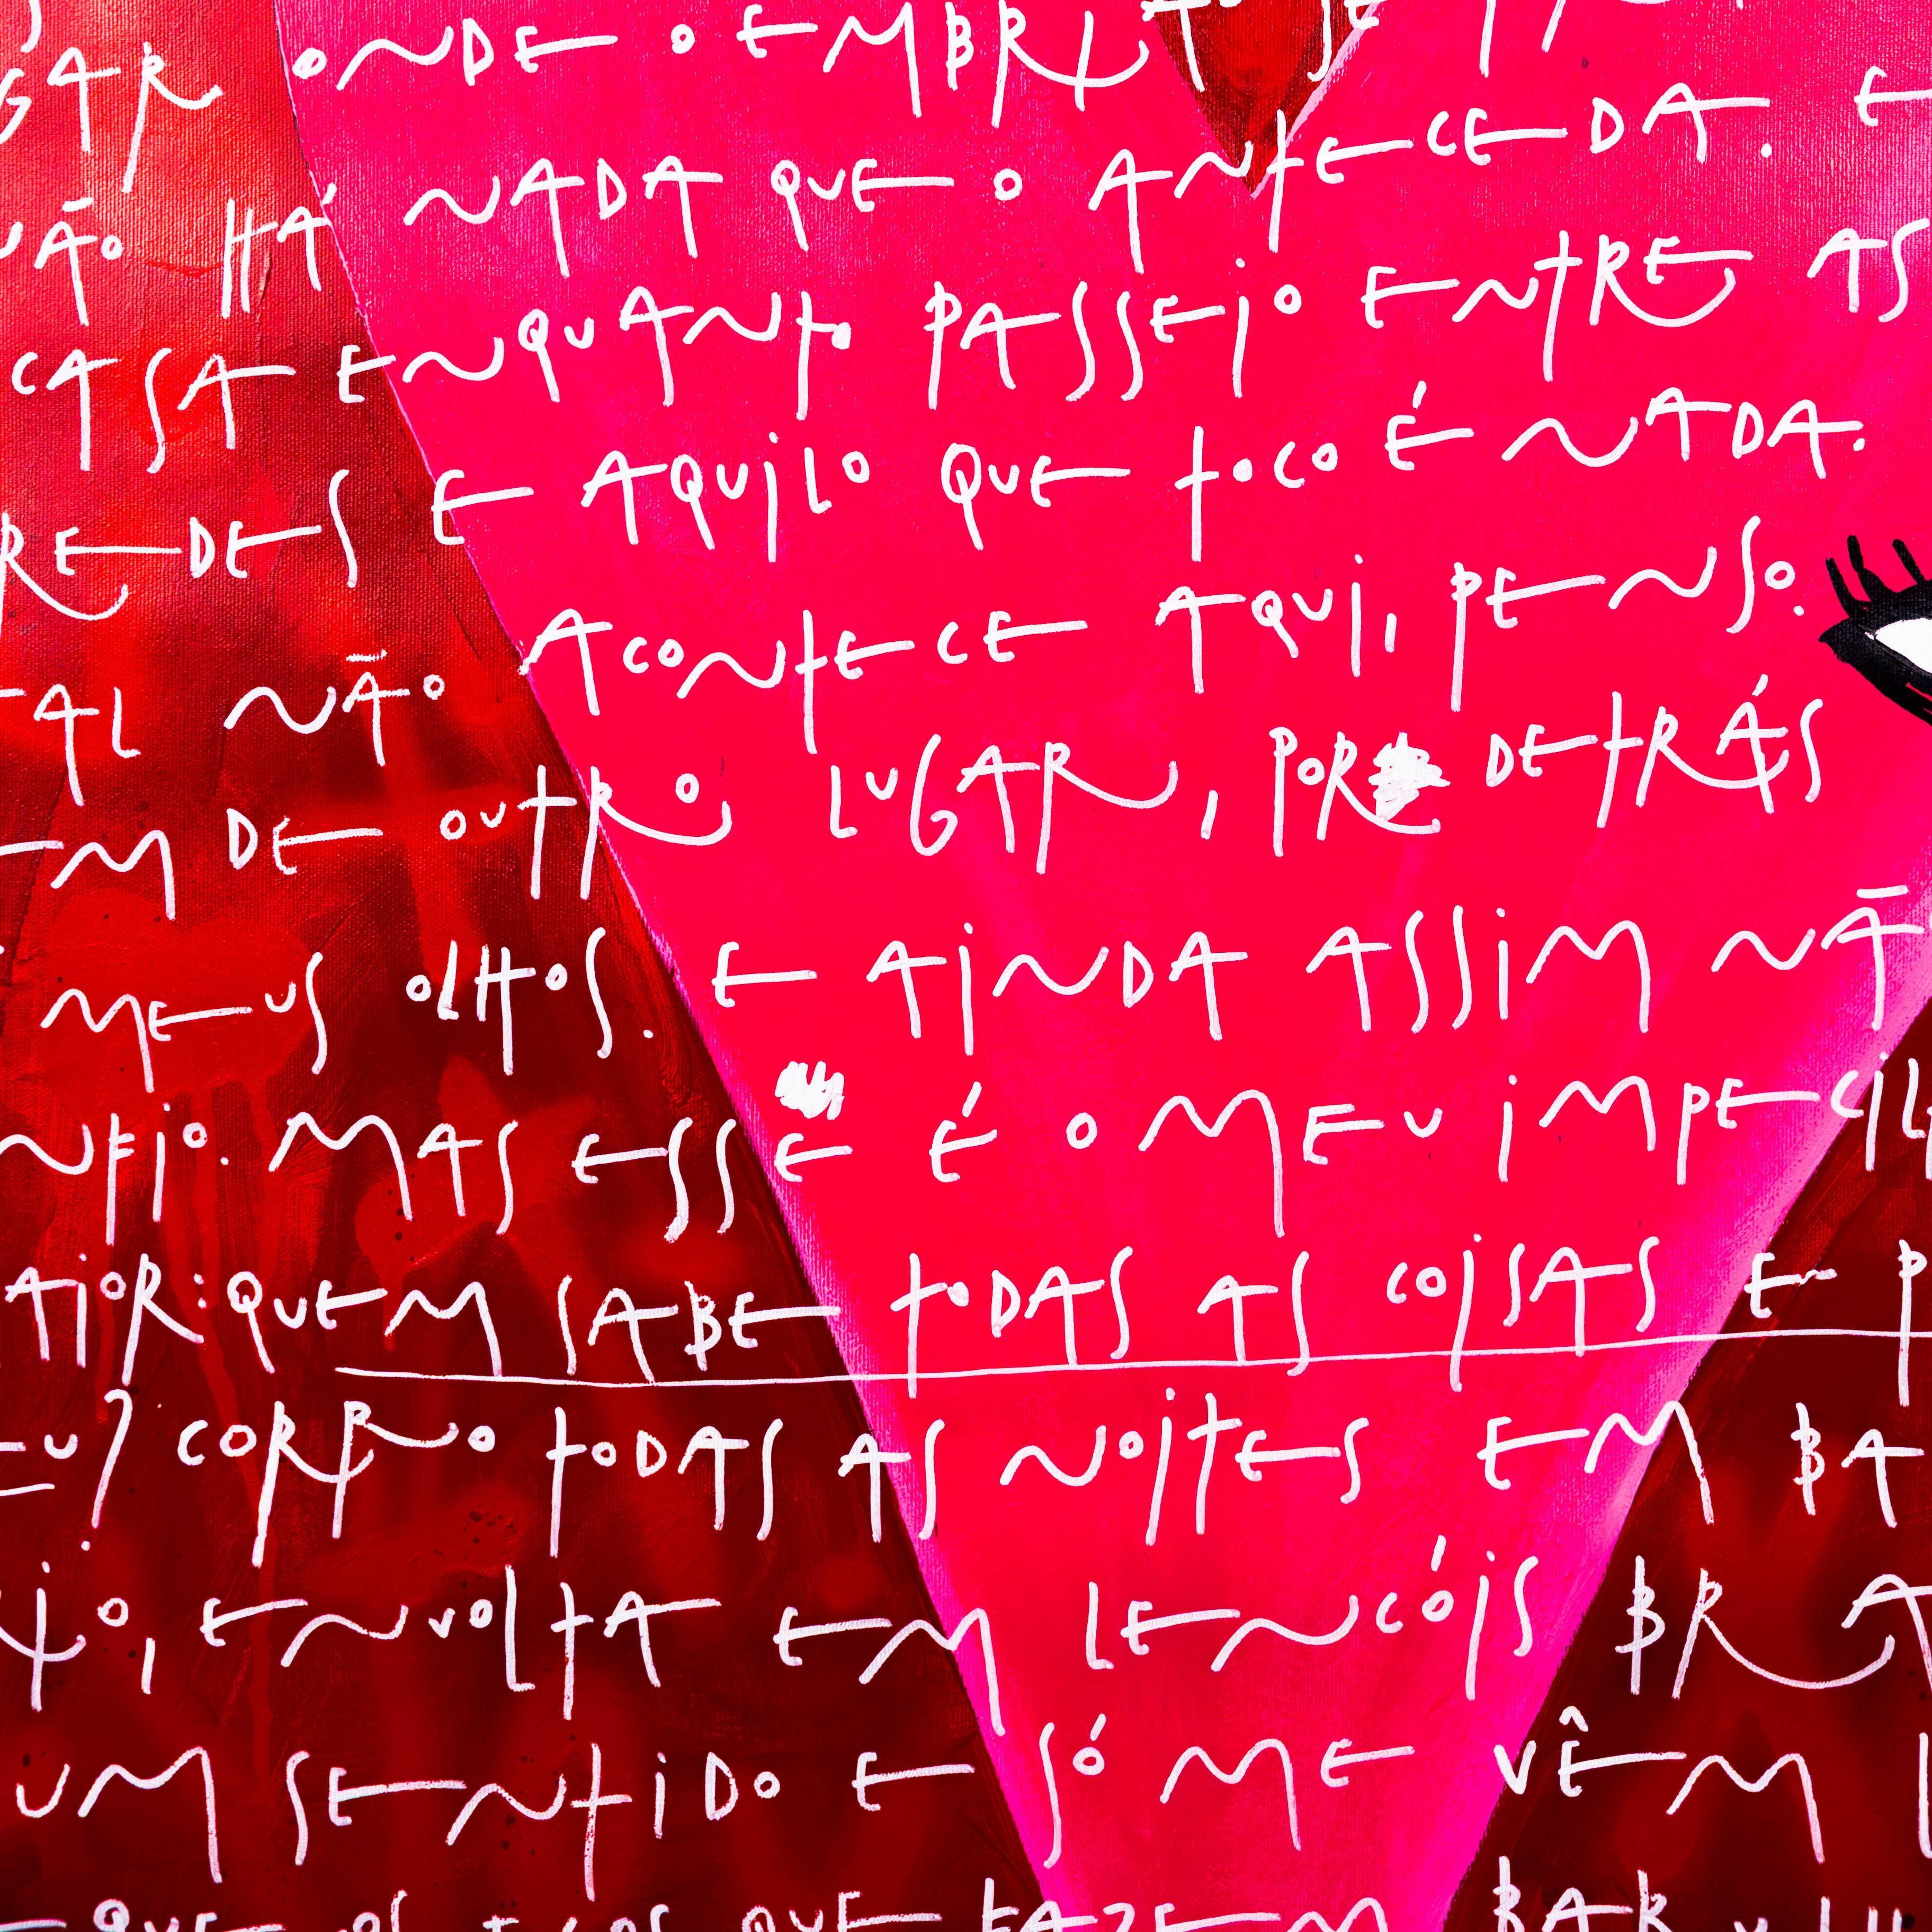 GAR ONDE O EMBRIÃO SE
NÃO HÁ NADA QUE O ANTECEDA. E
CASA ENQUANTO PASSEIO ENTRE AS
REDES E AQUILO QUE TOCO É NADA.
AL NÃO ACONTECE AQUI, PENSO.
EM DE OUTRO LUGAR, POR DETRÁS
MEUS OLHOS. E AINDA ASSIM NÃ
MAS ESSE É O MEU IMPECIL
AIOR: QUEM SABE TODAS AS COISAS E P
EU? CORRO TODAS AS NOITES EM BA
IO, ENVOLTA EM LENCÓIS BRA
UM SENTIDO E SÓ ME VÊM
QUE OS QUE FAZEM BARULH